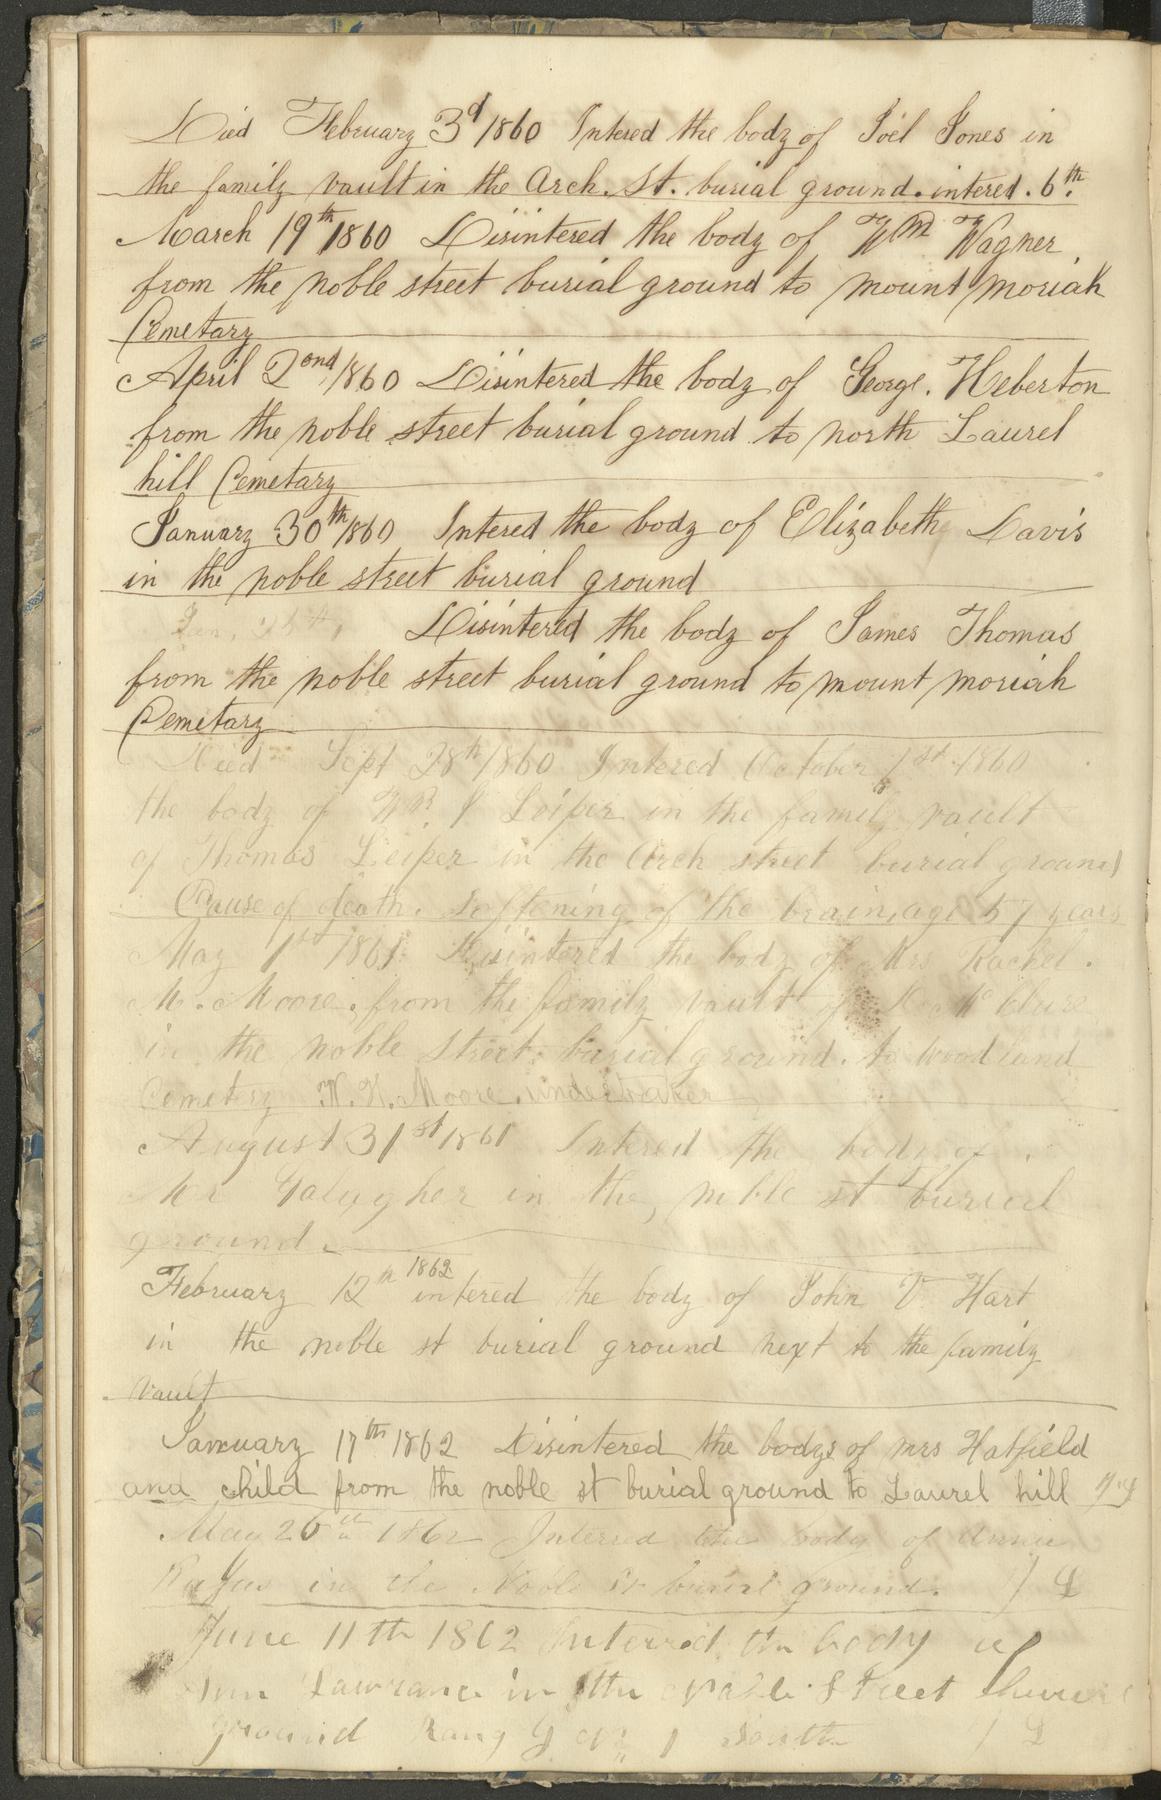 Died February 3d 1860 Intered the body of Joel Jones in
the family vault in the Arch. St. burial ground. intered. 6th.
March 19th 1860 Disintered the body of Wm Wagner
from the noble street burial ground to mount moriah
Cemetary
April 2ond 1860 Disintered the body of George. Heberton
from the noble street burial ground to north Laurel
hill Cemetary
January 30th 1860 Intered the body of Elizabeth Davis
in the noble street burial ground
Disintered the body of James Thomas
from the noble street burial ground to mount moriah
Cemetary
Died Sept 28th 1860 Intered October 1st 1860
the body of Wm J Leiper in the family vault
of Thomas Leiper in the Arch street burial ground
Cause of death. Softening of the brain, age 57 years
May 1st 1861 Disintered the body of Mrs Rachel.
M. Moore. from the family vault of
in the noble street. burial ground. to woodland
Cemetery W. H. Moore. undertaker
August 31st 1861 Intered the body of
Mr Galugher in the, noble st burial
ground.
February 12th 1862 intered the body of John V Hart
in the noble st burial ground next to the family
vault
January 17th 1862 Disintered the bodys of mrs Hatfield
and child from the noble st burial ground to Laurel hill
May 26th 1862 Interred the body of Annie
in the Noble St burial ground.
June 11th 1862 Interred the body of
Lawrance in the Noble Street
ground Rang G No 1 South